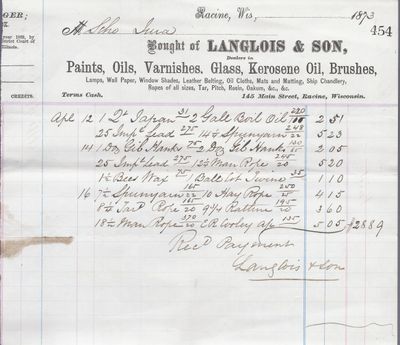 GER;
Racine, Wis, 1873
454
year 1869, by
District Court of
Illinois.
Scho Iuva
Bought of LANGLOIS & SON,
Dealers in
Paints, Oils, Varnishes, Glass, Kerosene Oil, Brushes,
Lamps, Wall Paper, Window Shades, Leather Belting, Oil Cloths, Mats and Matting, Ship Chandlery,
Ropes of all sizes, Tar, Pitch, Rosin, Oakum, &c., &c.
CREDITS.
Terms Cash.
145 Main Street, Racine, Wisconsin.
Apl 12 1 Qt Japan 31 2 Galls Boil Oil 220 2 51
25 Impl Lead 275 14½ Spunyarn 248 5 23
14 1 Doz Gib Hanks 75 2 Doz Gib Hanks 130 2 05
25 Impl Lead 275 12½ Man Rope 245 5 20
1½ Bees Wax 75 1 Ball Cot Twine 35 1 10
16 7½ Spunyarn 165 10 Hay Rope 250 4 15
Tard Rope 165 9¾ Ratline 195 3 60
18½ Man Rope 370 E.R. Cooley a/c 135 5 05 $28 89
Recd Payment
Langlois & Son